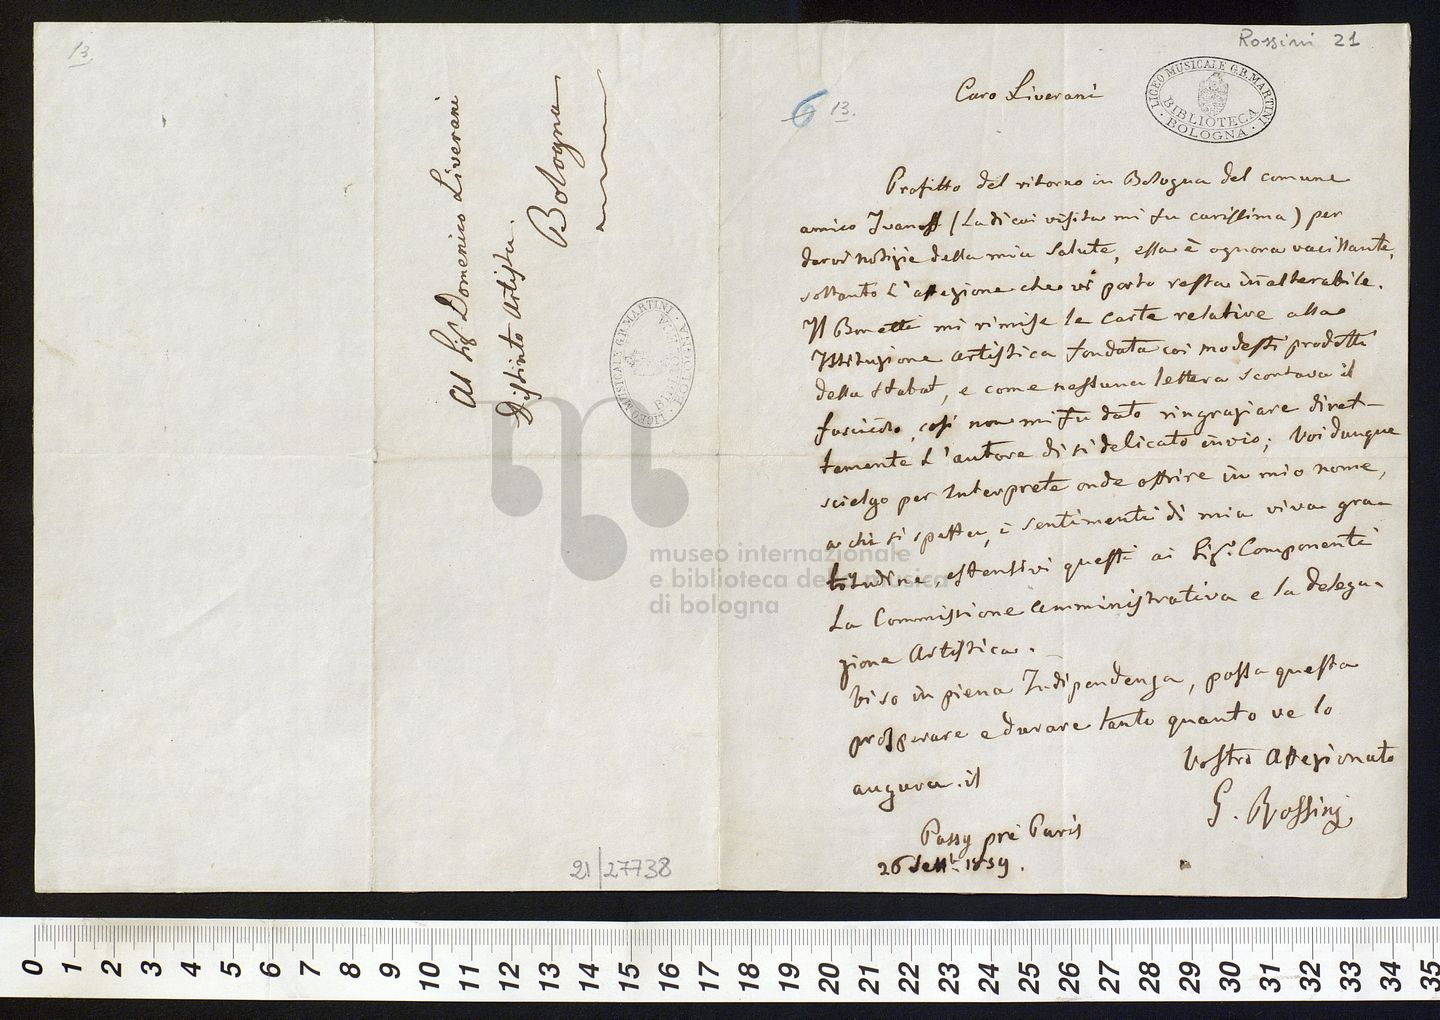 13.
Al Sigr Domenico Liverani
Distinto Artista.
Bologna
LICEO MUSICALE G.B. MARTINI
BIBLIOTECA
BOLOGNA
21/27738
Rossini 21
6 13.
LICEO MUSICALE G.B. MARTINI
BIBLIOTECA
· BOLOGNA ·
Caro Liverani
Profitto del ritorno in Bologna del comune
amico Ivanoff (La di cui visita mi fu carissima) per
darvi notizie della mia Salute, essa è ognora vacillante,
soltanto l'affezione che vi porto resta inalterabile.
Il Bonetti mi rimise le carte relative alla
Istituzione artistica fondata coi modesti prodotti
dello Stabat, e come nessuna lettera scortava il
fascicolo, così non mi fu dato ringraziare diret-
tamente l'autore di sì delicato invio; Voi dunque
scielgo per Interprete onde offrire in mio nome,
a chi si spetta, i sentimenti di mia viva gra-
titudine, estensivi questi ai Sigri Componenti
La Commissione amministrativa e la delega-
zione Artistica.
Vi so in piena Indipendenza, possa questa
prosperare e durare tanto quanto ve lo
augura il
Vostro Affezionato
G. Rossini
Passy pré Paris
26 Sette 1859.
museo internazionale
e biblioteca della musica
di bologna
0 1 2 3 4 5 6 7 8 9 10 11 12 13 14 15 16 17 18 19 20 21 22 23 24 25 26 27 28 29 30 31 32 33 34 35